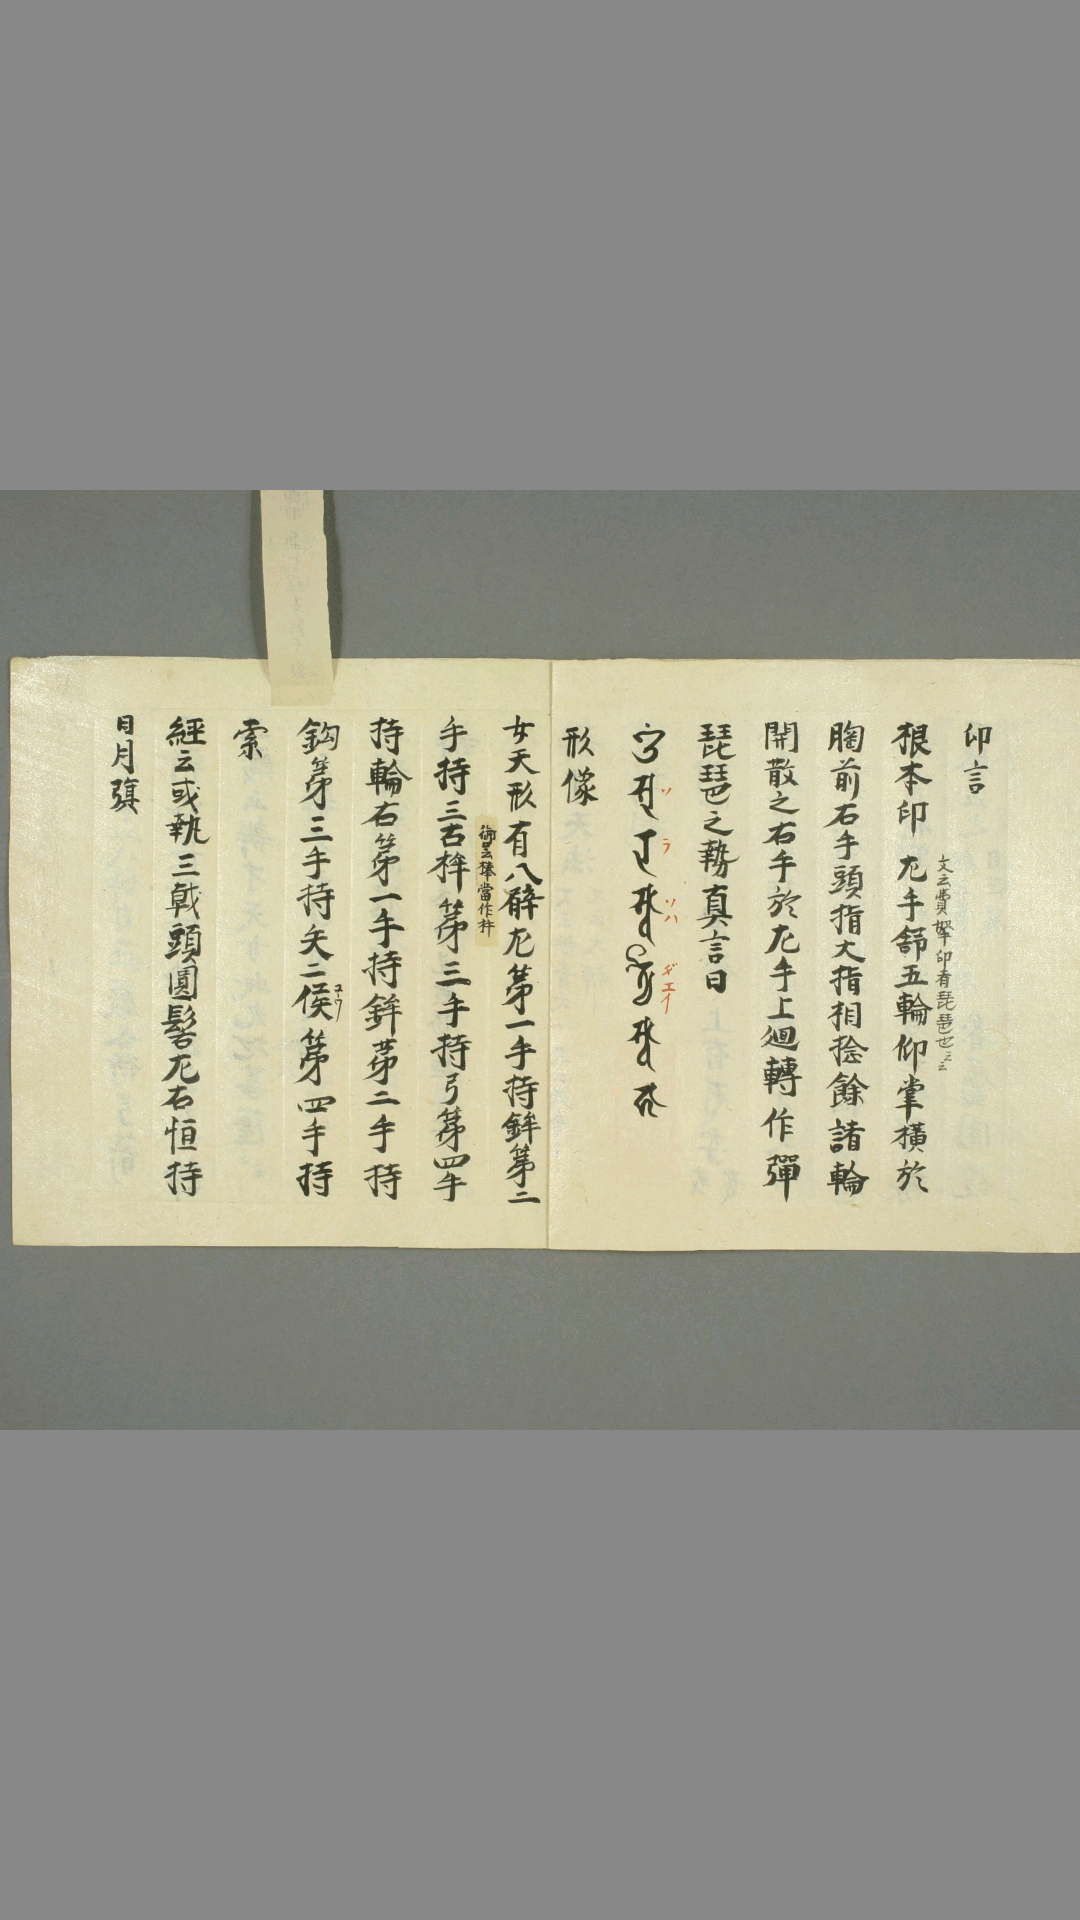 印言
根本印 左手舒五輪仰掌横於
文云費拏印者琵琶也云云
胸前右手頭指大指相捻餘諸輪
開散之右手於左手上廻轉作彈
琵琶之勢真言曰
ソ ラ ソハ ヂエイ
形像
女天形有八臂左第一手持鉾第二
手持三古杵第三手持弓第四手
持輪右第一手持鉾第二手持
鈎第三手持矢二俣第四手持
索
經云或執三戟頭圓髻左右恒持
日月旗